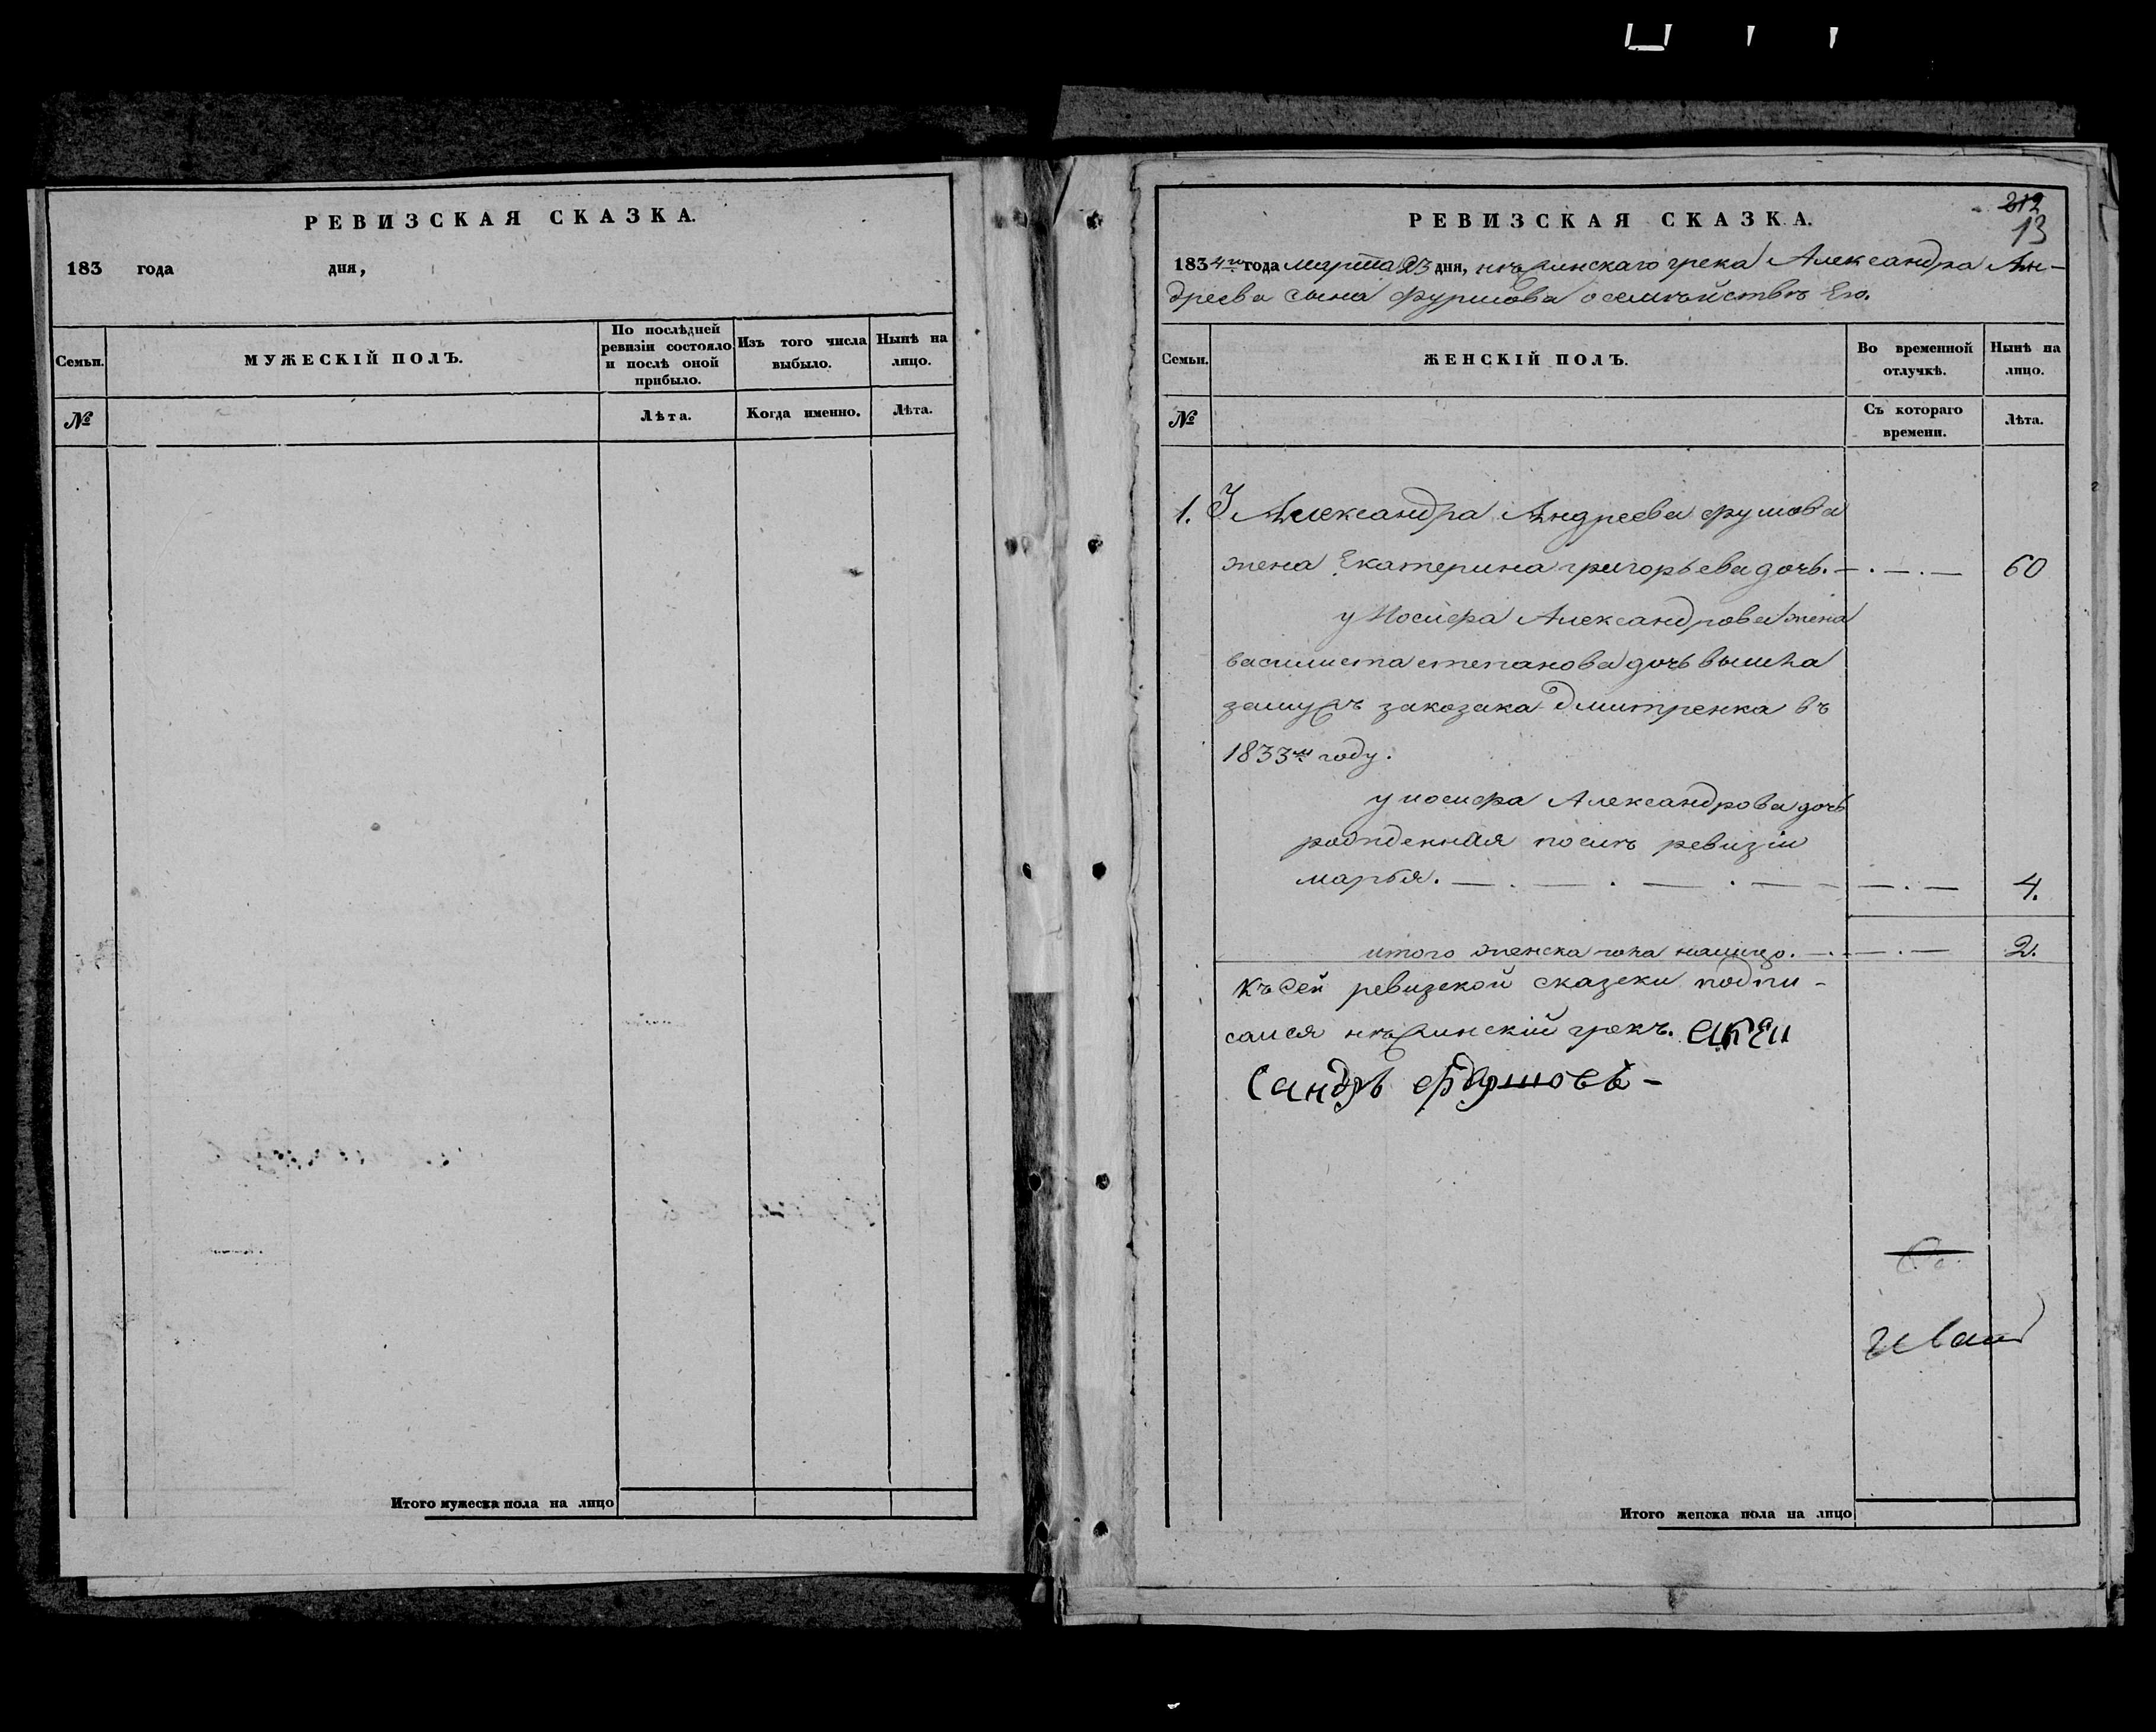 РЕВИЗСКАЯ СКАЗКА.
183 года дня,
Семьи.
МУЖЕСКІЙ ПОЛЪ.
По послѣдней
ревизіи состояло
и послѣ оной
прибыло.
Изъ того числа
выбыло.
Нынѣ на
лицо.
№
Лѣта.
Когда именно.
Лѣта.
Итого мужеска пола на лицо
212
13
РЕВИЗСКАЯ СКАЗКА.
1834го года марта 23 дня, нѣжинскаго грека Александра Ан-
дреева сына Фуршова о семѣйствѣ Его.
Семьи.
ЖЕНСКІЙ ПОЛЪ.
Во временной
отлучкѣ.
Нынѣ на
лицо.
№
Съ котораго
времени.
Лѣта.
1. У Александра Андреева Фушова
жена Екатерина григорьева дочь. 60
у Иосифа Александрова жена
василиста степанова дочь вышла
замужъ закозака Дмитренка въ
1833м году.
у иосифа Александрова дочь
рожденная послѣ ревизіи
марья. 4.
итого женска пола налицо. 2.
Къ сей ревизской сказки подпи-
сался нѣжинскій грекъ.
сандръ
Иван
Итого женска пола на лицо